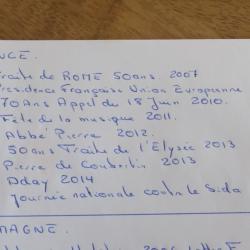 NCE.
Traité de ROME 50ans. 2007
Présidence Française Union Européenne
70Ans Appel du 18 Juin 2010.
Fête de la musique 2011.
Abbé Pierre 2012.
50ans Traité de l'Elysée 2013
Pierre de Coubertin 2013
Dday 2014
Journée nationale contre le Sida
MAGNE.